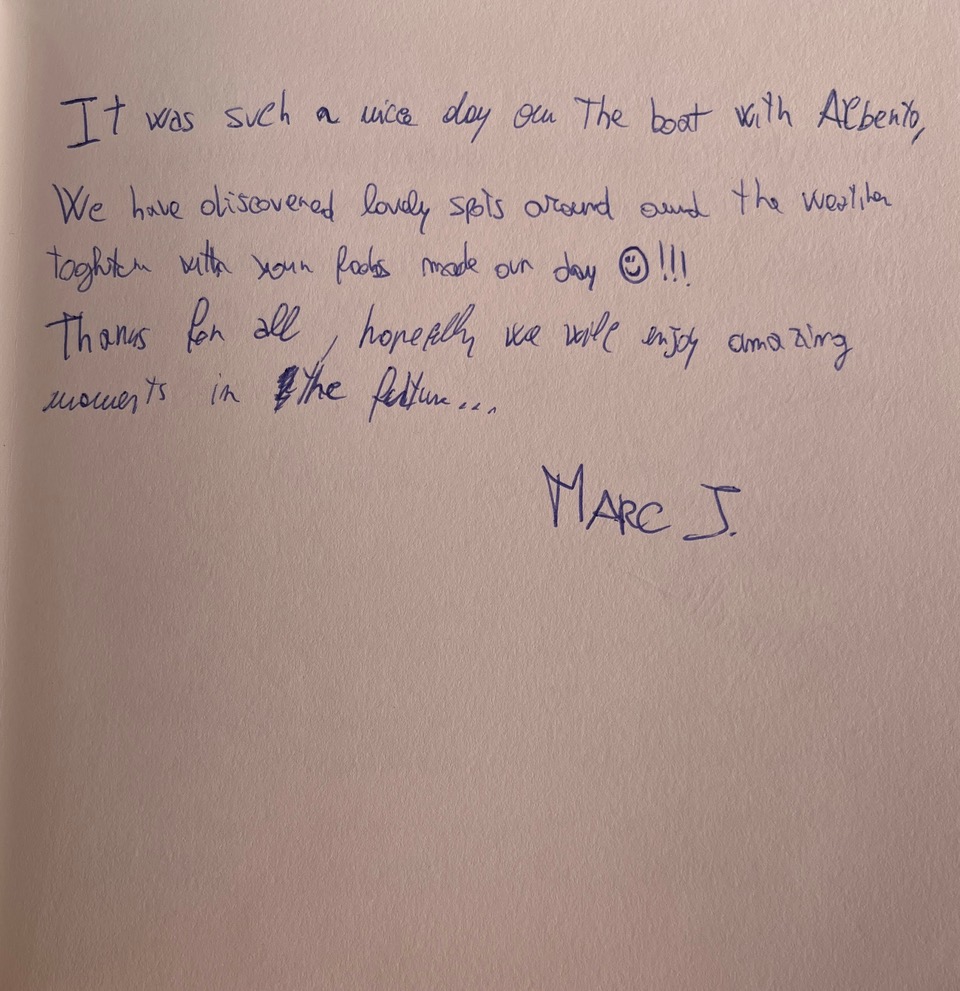 It was such a nice day on the boat with Alberto,
We have discovered lovely spots around and the weather
toghter with your foods made our day ☺!!!
Thanks for all, hopefully we will enjoy amazing
moments in the future...
MARC J.